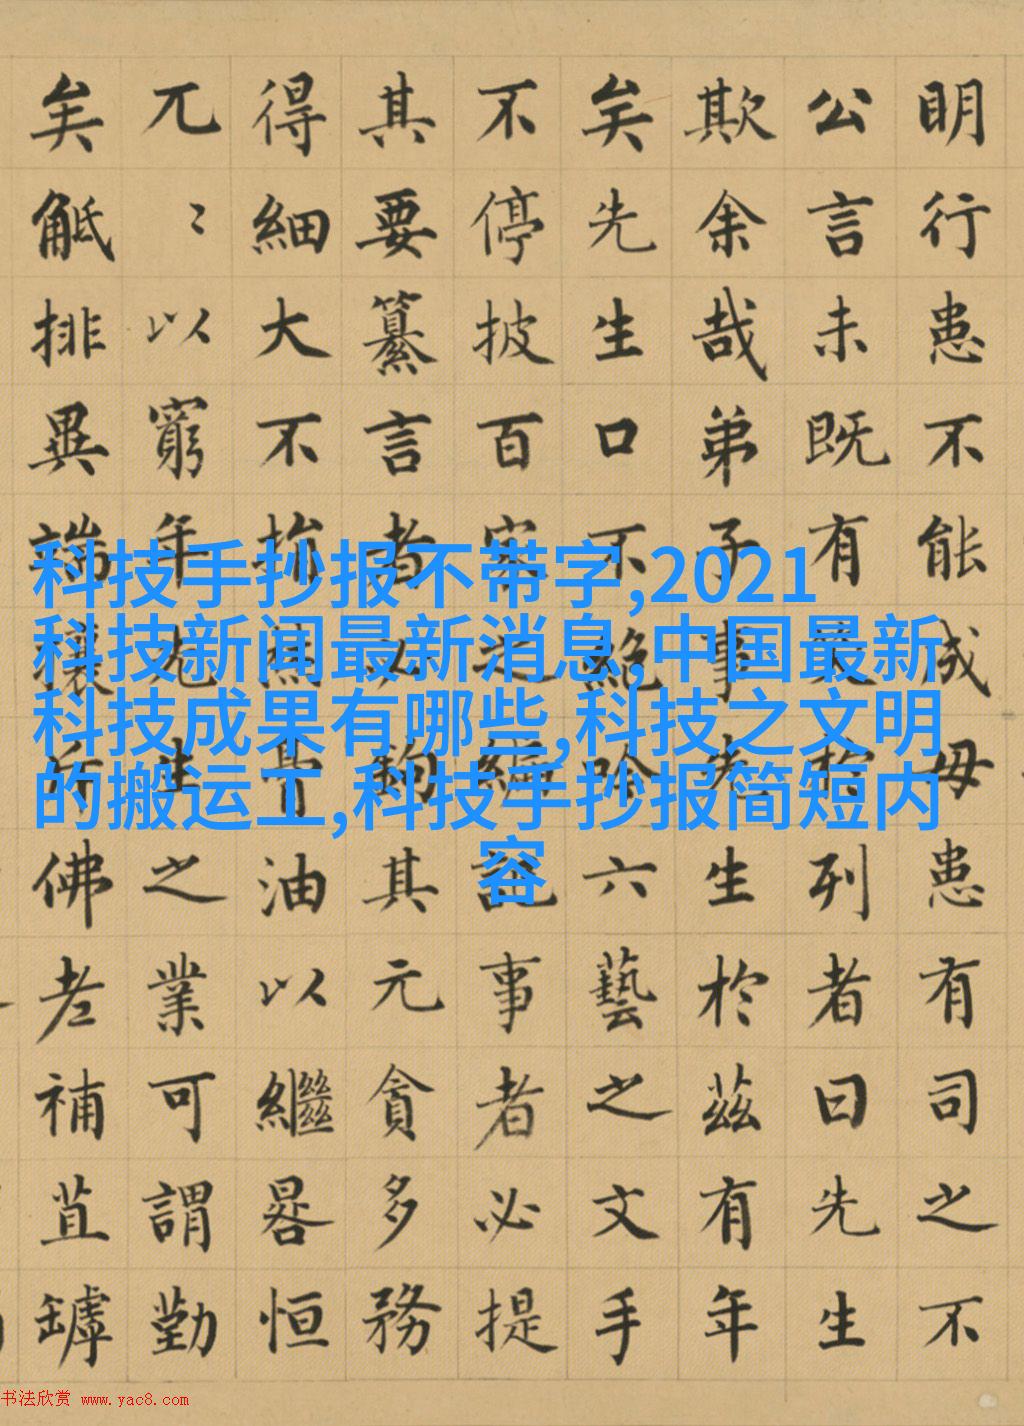 明行患不能成毋患有司之不
公言未既有笑於列者曰先生
欺余哉弟子事先生於茲有年
矣先生口不絕吟六藝之文手
不停披百家之編記事者必提
其要纂言者必鉤其元貪多務
得細大不捐焚膏油以繼晷恒
兀〻以窮年先生之業可謂勤
矣觝排異端攘斥佛老補苴罅
科技手抄报不带字,2021
科技新闻最新消息,中国最新
科技成果有哪些,科技之文明
的搬运工,科技手抄报简短内
容
书法欣赏 www.yac8.com